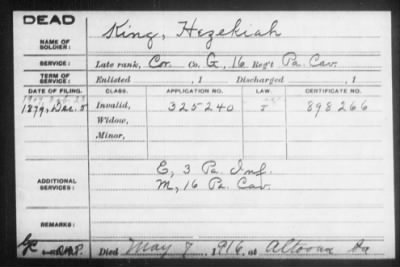 DEAD
NAME OF SOLDIER: King, Hezekiah
SERVICE: Late rank, Cor. Co. G, 16 Reg't Pa. Cav.
TERM OF SERVICE: Enlisted , 1 Discharged , 1
DATE OF FILING. CLASS. APPLICATION NO. LAW. CERTIFICATE NO.
1879, Dec. 5 Invalid, 325240 898266
Widow,
Minor,
ADDITIONAL SERVICES: E, 3 Pa. Inf.
M, 16 Pa. Cav.
REMARKS:
Died May 7, 1916, at Altoona Pa